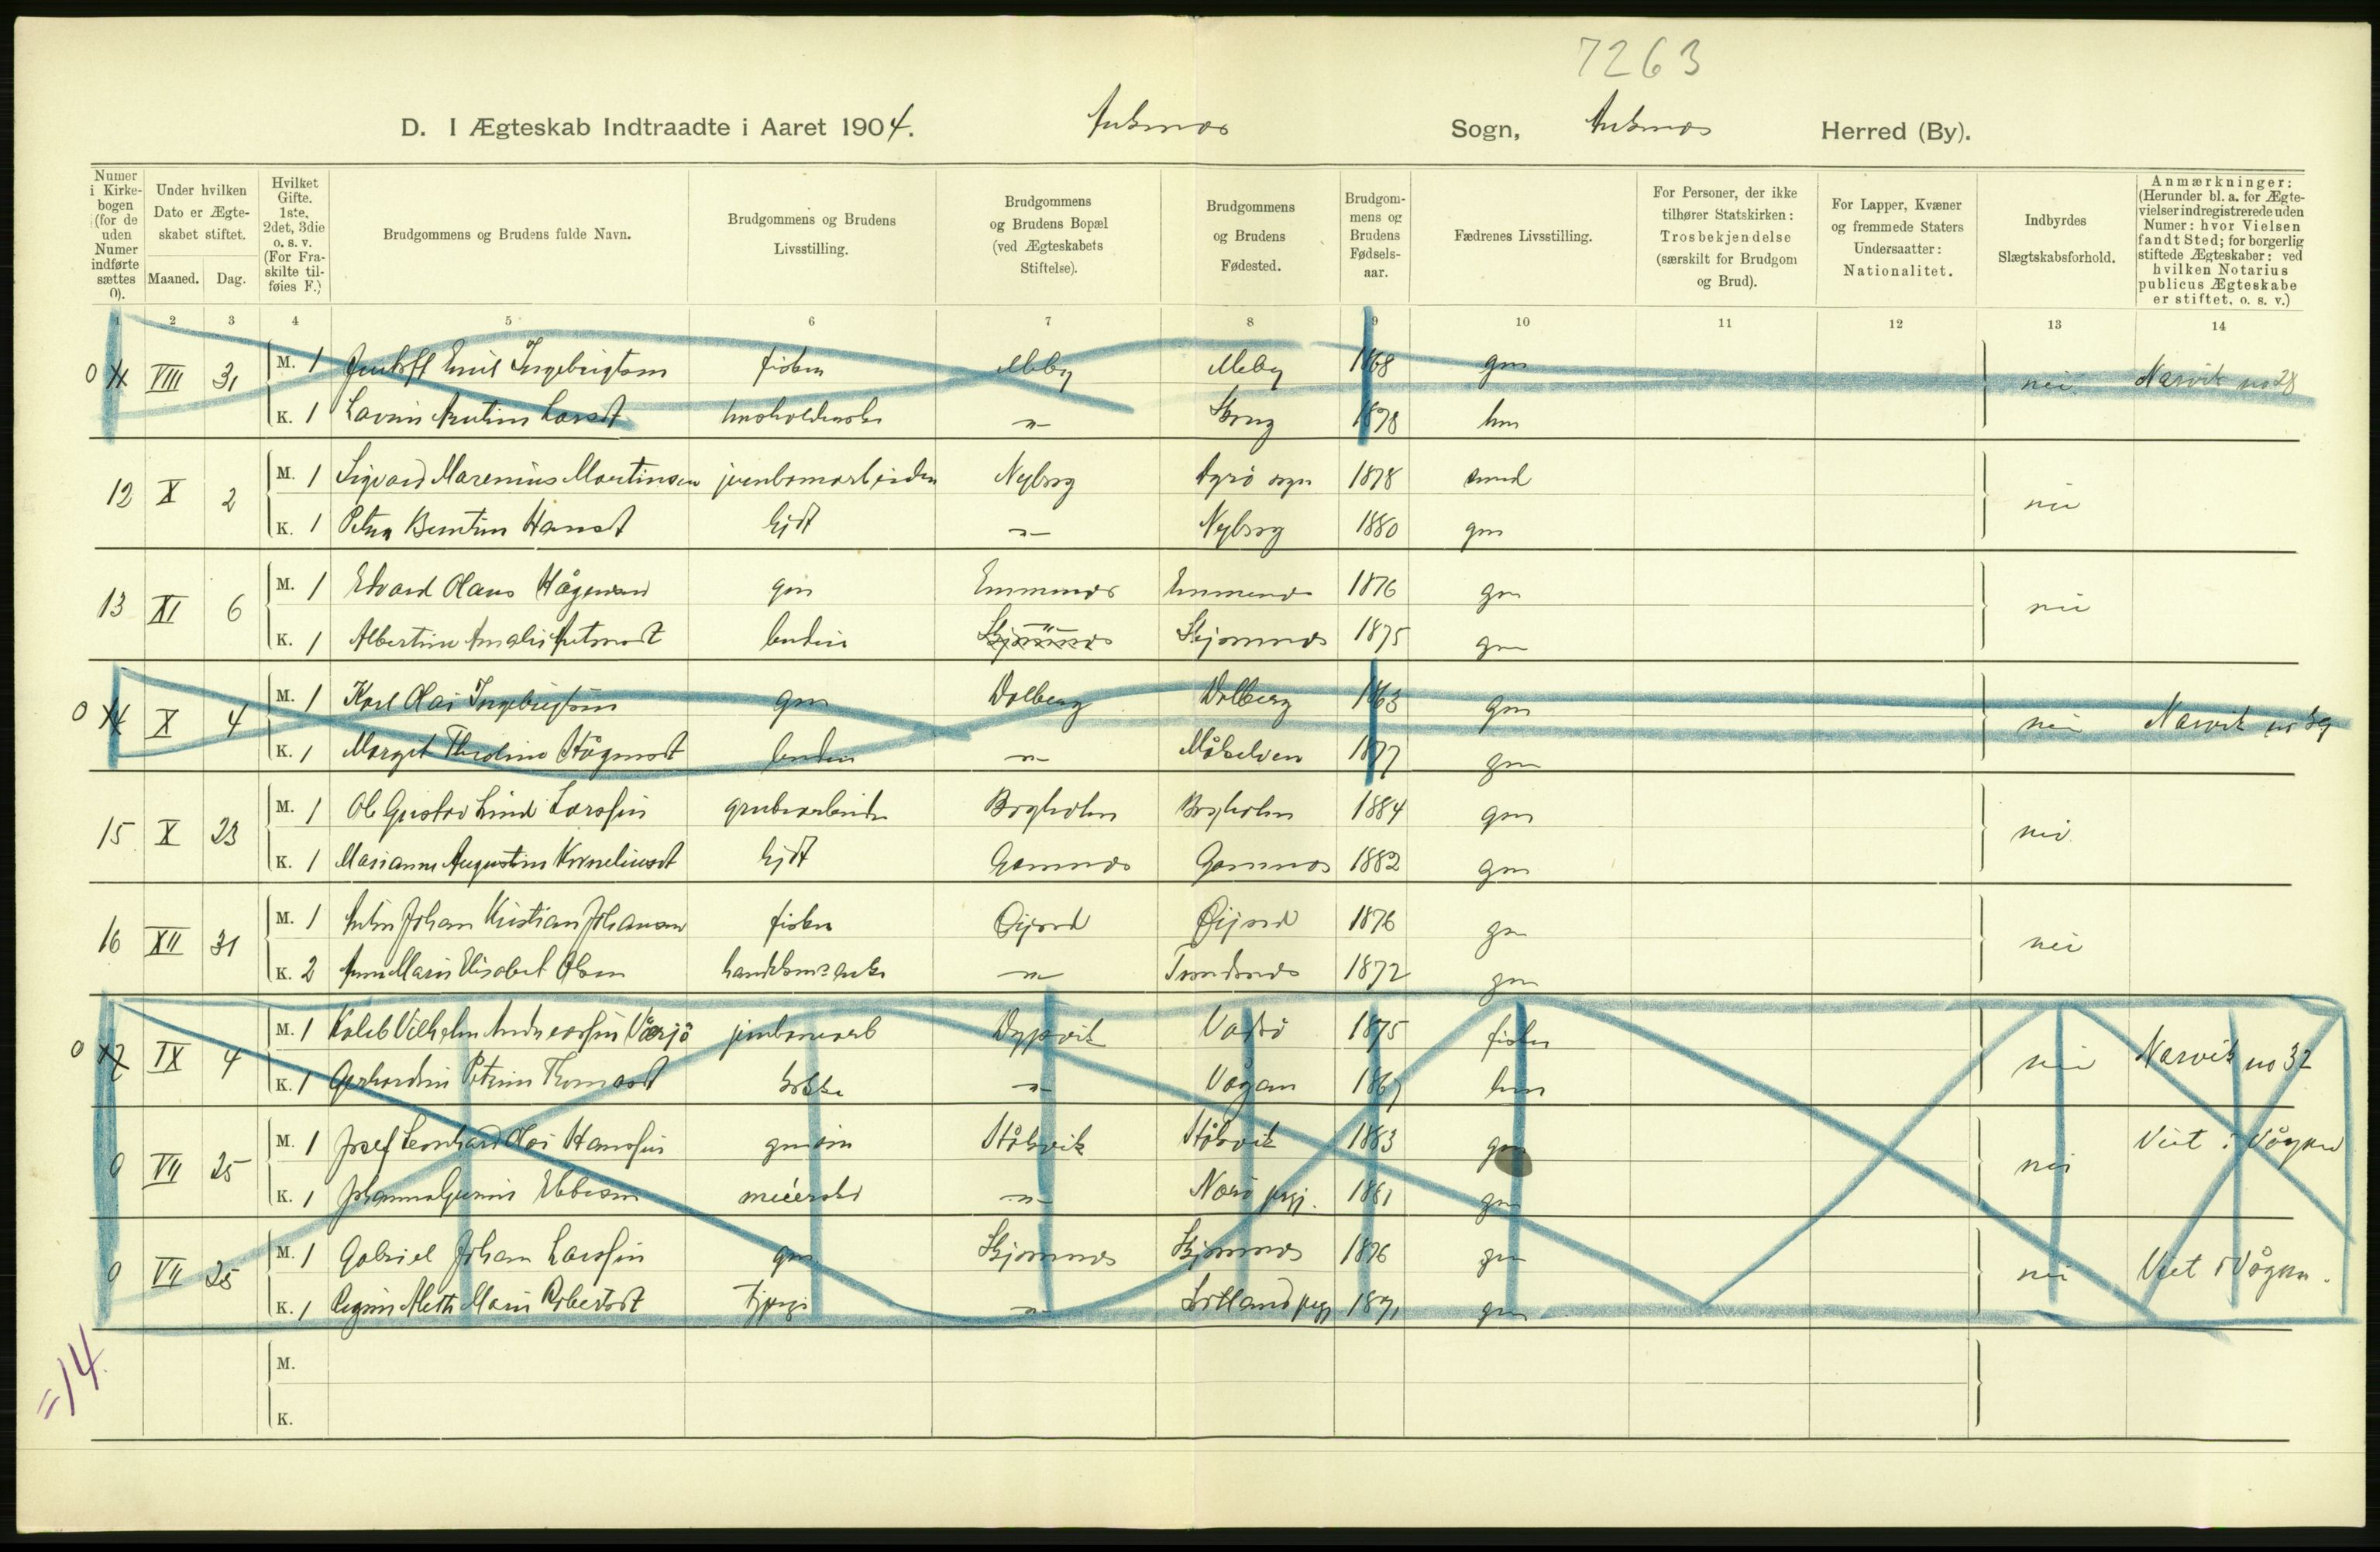 7263
D. I Ægteskab Indtraadte i Aaret 1904. Ankenes Sogn, Ankenes Herred (By).
Numer i Kirkebogen (for de uden Numer indførte sættes 0).
Under hvilken Dato er Ægteskabet stiftet.
Maaned. Dag.
Hvilket Gifte. 1ste, 2det, 3die o. s. v. (For Fraskilte tilføies F.)
Brudgommens og Brudens fulde Navn.
Brudgommens og Brudens Livsstilling.
Brudgommens og Brudens Bopæl (ved Ægteskabets Stiftelse).
Brudgommens og Brudens Fødested.
Brudgommens og Brudens Fødselsaar.
Fædrenes Livsstilling.
For Personer, der ikke tilhører Statskirken: Trosbekjendelse (særskilt for Brudgom og Brud).
For Lapper, Kvæner og fremmede Staters Undersaatter: Nationalitet.
Indbyrdes Slægtskabsforhold.
Anmærkninger: (Herunder bl. a. for Ægtevielser indregistrerede uden Numer: hvor Vielsen fandt Sted; for borgerlig stiftede Ægteskaber: ved hvilken Notarius publicus Ægteskabe er stiftet, o. s. v.)
1 2 3 4 5 6 7 8 9 10 11 12 13 14
0 VIII 31 M. 1 Emil Ingebrigtsen fisker Meby Meby 1868 gm nei Narvik no 28
K. 1 Larsdt husholderske -"- 1878 hm
12 X 2 M. 1 Sigvard Marenius Martinsen jernbanearbeider Nyborg 1878 smed nei
K. 1 Petra Hansdt hjdt -"- Nyborg 1880 gm
13 XI 6 M. 1 Edvard Olaus Hågensen gm Emmenes Emmenes 1876 gm nei
K. 1 Albertine Amalie -"- Skjomnes 1875 gm
0 X 4 M. 1 Karl Olai Ingebrigtsen gm Dalberg Dalberg 1863 gm nei Narvik no 39
K. 1 Margit Hågensdt -"- Målselven 1877 gm
15 X 23 M. 1 Ole Gustav Lind Larssen grubearbeider Bogholm Bogholm 1884 gm nei
K. 1 Marianne Augustine Korneliusdt hjdt Gamnes Gamnes 1882 gm
16 XII 31 M. 1 Johan Kristian Johansen fisker Øijord Øijord 1876 gm nei
K. 2 Anne Marie Elisabet Olsen -"- Trondenes 1872 gm
0 IX 4 M. 1 Kaleb Vilhelm Andreassen jernbanearb Dypvik Vadsö 1875 fisker nei Narvik no 32
K. 1 Petrine Thomasdt kokke -"- Vågan 1867 hm
0 VII 25 M. 1 Josef Leonhard Olai Hanssen Håkvik Håkvik 1883 gm nei Viet i Vågan
K. 1 meierske -"- 1881 gm
0 VII 25 M. 1 Gabriel Johan Larssen gm Skjomnes Skjomnes 1876 gm nei Viet i Vågan.
K. 1 Regine Mette Marie Robertsdt -"- 1871 gm
M.
K.
=14.